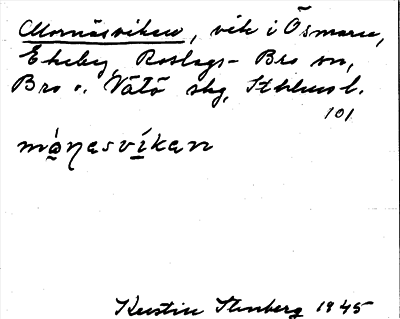 Mornäsviken, vik i Ösmaren,
Ekeby, Roslags-Bro sn,
Bro o. Vätö skg, Sthlms l.
101
mȧṇasvíkan
Kerstin Stenberg 1945